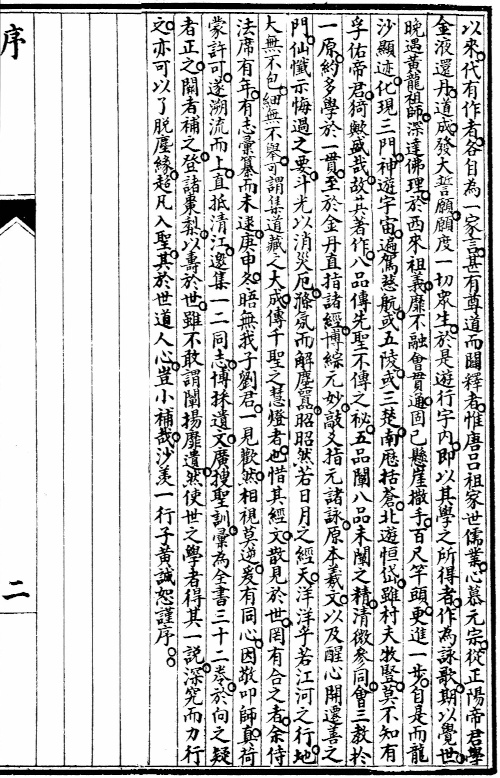 以來代有作者各自為一家言甚有尊道而闢釋者惟唐呂祖家世儒業心慕元宗從正陽帝君學
金液還丹道成發大誓願願度一切衆生於是遊行宇內即以其學之所得者作為詠歌期以覺世
晚遇黃龍祖師深達佛理於西來祖義靡不融會貫通固已懸崖撒手百尺竿頭更進一步自是而龍
沙顯迹化現三門神遊宇宙遍駕慈航或五陵或三楚南歷括蒼北遊恒岱雖村夫牧豎莫不知有
孚佑帝君猗歟盛哉故其著作八品傳先聖不傳之秘五品闡八品未闡之精清微參同會三教於
一原約多學於一貫至於金丹直指諸經博綜元妙敲爻指元諸詠原本羲文以及醒心開遷善之
門仙懺示悔過之要斗光以消災厄滌氛而解塵囂昭昭然若日月之經天洋洋乎若江河之行地
大無不包細無不舉可謂集道藏之大成傳千聖之慧燈者也惜其經文散見於世罔有合之者余侍
法席有年有志彙纂而未逮庚申冬晤無我子劉君一見歡然相視莫逆爰有同心因敬叩師真荷
蒙許可遂溯流而上直抵清江邊集一二同志博採遺文廣搜聖訓彙為全書三十二卷於向之疑
者正之闕者補之登諸棗梨以壽於世雖不敢謂闡揚靡遺然使世之學者得其一說深究而力行
之亦可以了脫塵緣超凡入聖其於世道人心豈小補哉沙羨一行子黃誠恕謹序
序
二